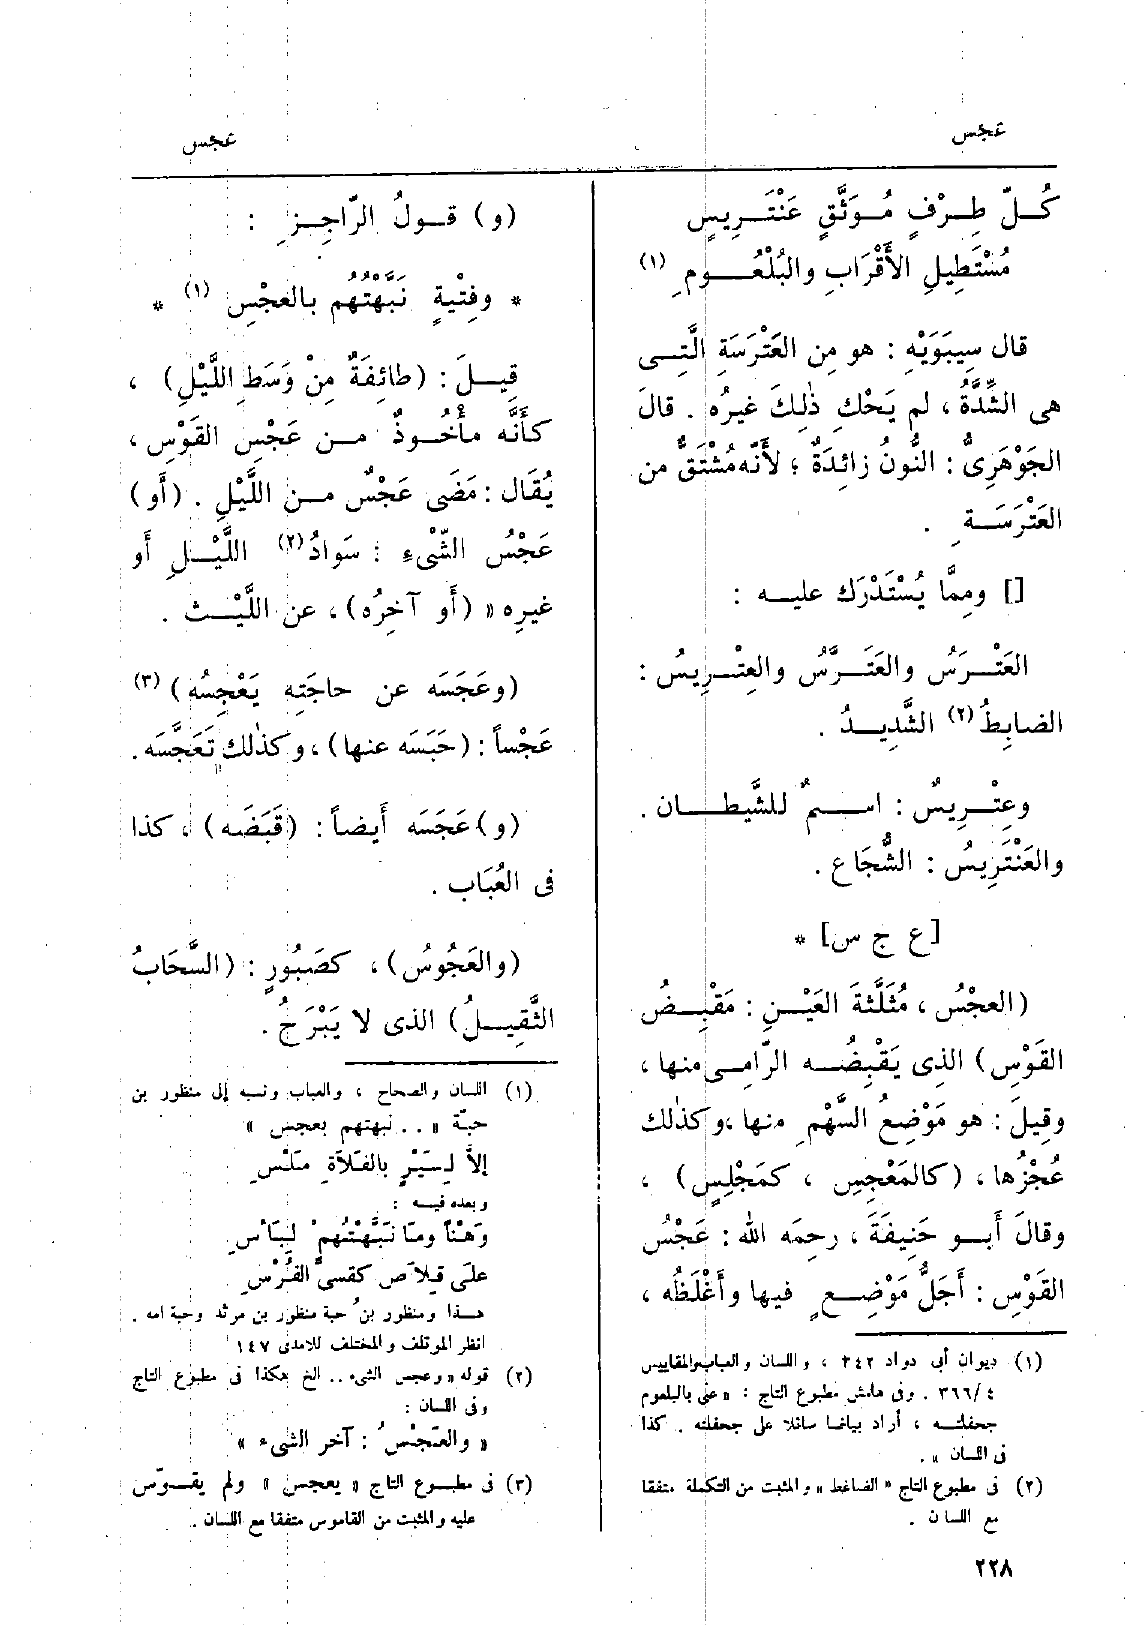 عجس
عجس
كُلّ طِرْفٍ مُوَثَّقٍ عَنْتَرِيسٍ
مُسْتَطِيلِ الأَقْرَابِ والبُلْعُومِ (١)
قال سِيبَوَيْهِ : هو مِن العَتْرَسَةِ الَّتِى
هى الشِّدَّةُ ، لم يَحْكِ ذٰلِكَ غيرُه . قالَ
الجَوْهَرِىُّ : النُّونُ زائِدَةٌ ؛ لأَنَّه مُشْتَقٌّ من
العَتْرَسَةِ .
[] ومِمَّا يُسْتَدْرَك عليه :
العَتْرَسُ والعَتَرَّسُ والعِتْرِيسُ :
الضابِطُ (٢) الشَّدِيدُ .
وعِتْرِيسٌ : اسمٌ للشَّيطان .
والعَنْتَرِيسُ : الشُّجَاع .
[ع ج س] *
(العجْسُ ، مُثَلَّثةَ العَيْنِ : مَقْبِضُ
القَوْسِ) الذِى يَقْبِضُه الرّامِى منها ،
وقِيلَ : هو مَوْضِعُ السَّهْمِ منها ،وكذٰلك
عُجْزُها ، (كالمَعْجِسِ ، كمَجْلِسٍ) ،
وقالَ أَبو حَنِيفَةَ ، رحِمَه الله : عَجْسُ
القَوْسِ : أَجَلُّ مَوْضِعٍ فيها وأَغْلَظُه ،
(١) ديوان أبى دواد ٣٤٢ ، واللسان والعباب والمقاييس
٤ /٣٦٦ . وفى هامش مطبوع التاج : « عنى بالبلعوم
جحفلته ، أراد بياضا سائلا على جحفلته . كذا
فى اللسان » .
(٢) فى مطبوع التاج « الضاغط » والمثبت من التكملة متفقا
مع اللسان .
(و) قولُ الرّاجِزِ :
* وفِتْيةٍ نَبَّهْتُهُم بالعجْسِ (١) *
قِيلَ : (طائِفَةٌ مِنْ وَسَطِ اللَّيْلِ) ،
كأَنَّه مأْخُوذٌ من عَجْسِ القَوْسِ ،
يُقَال : مَضَى عَجْسٌ من اللَّيْلِ . (أَو)
عَجْسُ الشَّىْءِ : سَوادُ (٢) اللَّيْلِ أَو
غيرِه » (أَو آخِرُه) ، عن اللَّيْث .
(وعَجَسَه عن حاجَتِه يَعْجِسُه) (٣)
عَجْساً : (حَبَسَه عنها) ، وكذٰلك تَعَجَّسَه .
(و) عَجَسَه أَيضاً : (قَبَضَه) ، كذا
فى العُبَاب .
(والعَجُوسُ) ، كصَبُورٍ : (السَّحَابُ
الثَّقِيلُ) الذى لا يَبْرَحُ .
(١) اللسان والصحاح ، والعباب ونسبه إلى منظور بن
حبّة « .. نبهتهم بعجس »
إلاَّ لِسَيْرٍ بالفَلاَةِ مَلْسِ
وبعده فيه :
وَهْناً ومَا نَبَّهْتُهُمْ لِبَأْسِ
عَلَى قِلاَصٍ كقِسِىِّ الفُرْسِ
هذا ومنظور بنُ حبة منظور بن مرثد وحبة امه .
انظر المؤتلف والمختلف للآمدى ١٤٧
(٢) قوله « وعجس الشىء .. الخ هكذا فى مطبوع التاج
وفى اللسان :
« والعَجْسُ : آخر الشىء »
(٣) فى مطبوع التاج « يعجس » ولم يقوّس
عليه والمثبت من القاموس متفقا مع اللسان .
٢٢٨